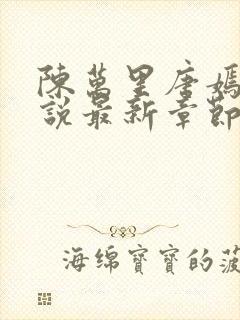 陳萬里唐嫣
說最新章節
海绵寶寶的菠